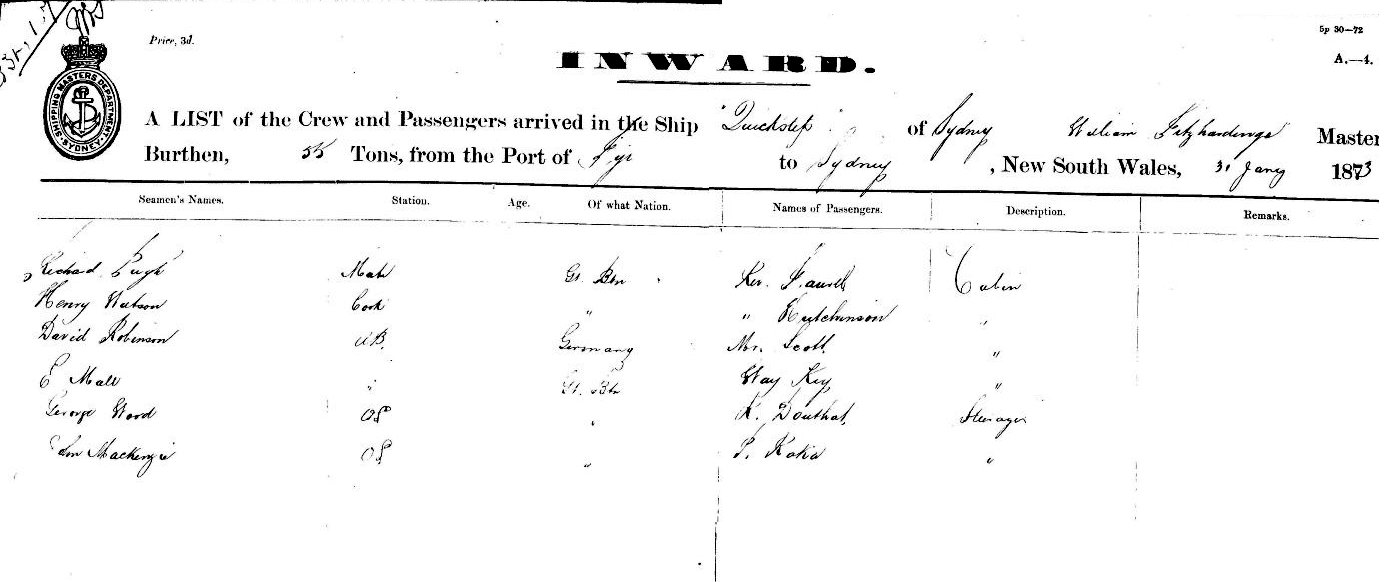 Price, 3d.
5p 30—72
A.—4.
INWARD.
SHIPPING MASTERS DEPARTMENT SYDNEY
A LIST of the Crew and Passengers arrived in the Ship "Quickstep" of Sydney William Fitzhardinge Master
Burthen, 55 Tons, from the Port of Fiji to Sydney, New South Wales, 31 Jany 1873
Seamen's Names. Station. Age. Of what Nation. Names of Passengers. Description. Remarks.
Richad Pugh Mate Gt. Btn Rev. Cabin
Henry Watson Cook " " Hutchinson "
David Robinson AB. Germany Mr. Scott "
E Mall " Gt. Btn Way Key "
George Wood OS " K. Douthat, Steerage
Mackenzie OS " S. Koka "